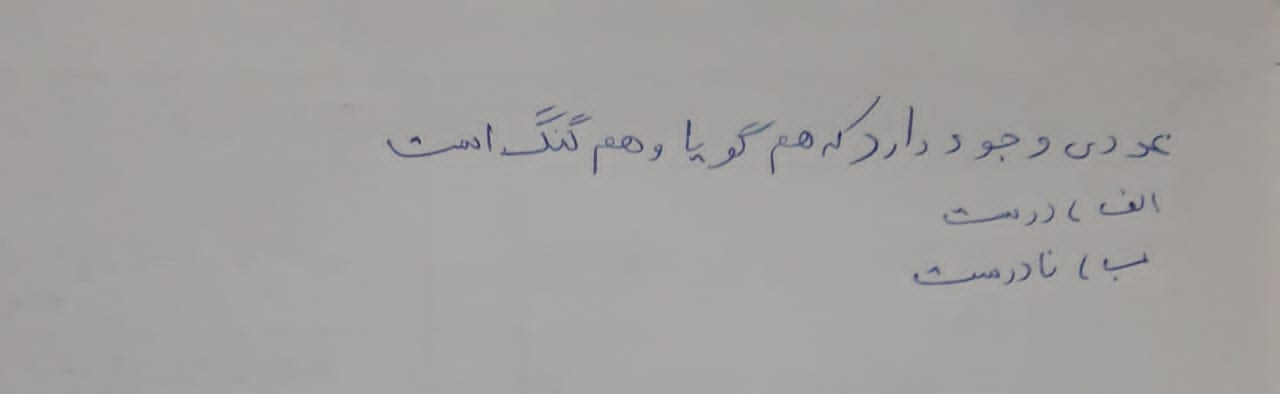 عددی وجود دارد که هم گویا و هم گنگ است
الف) درست
ب) نادرست